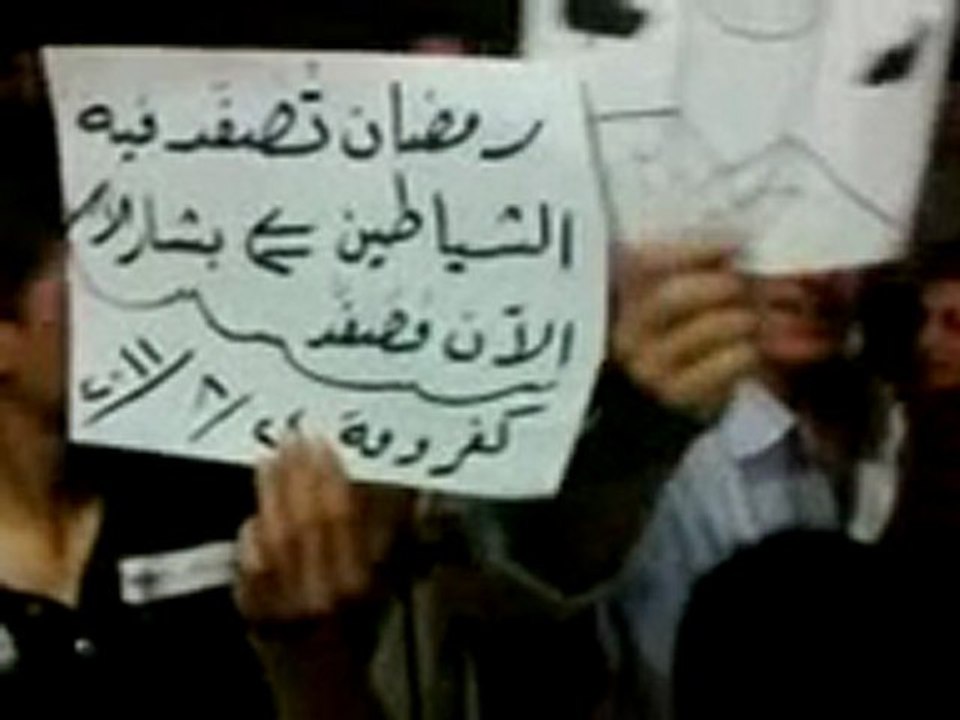 رمضان تُصَفَد فيه
الشياطين ⇐ بشار
الآن مُصَفَّد
كفرومة ٢٠١١